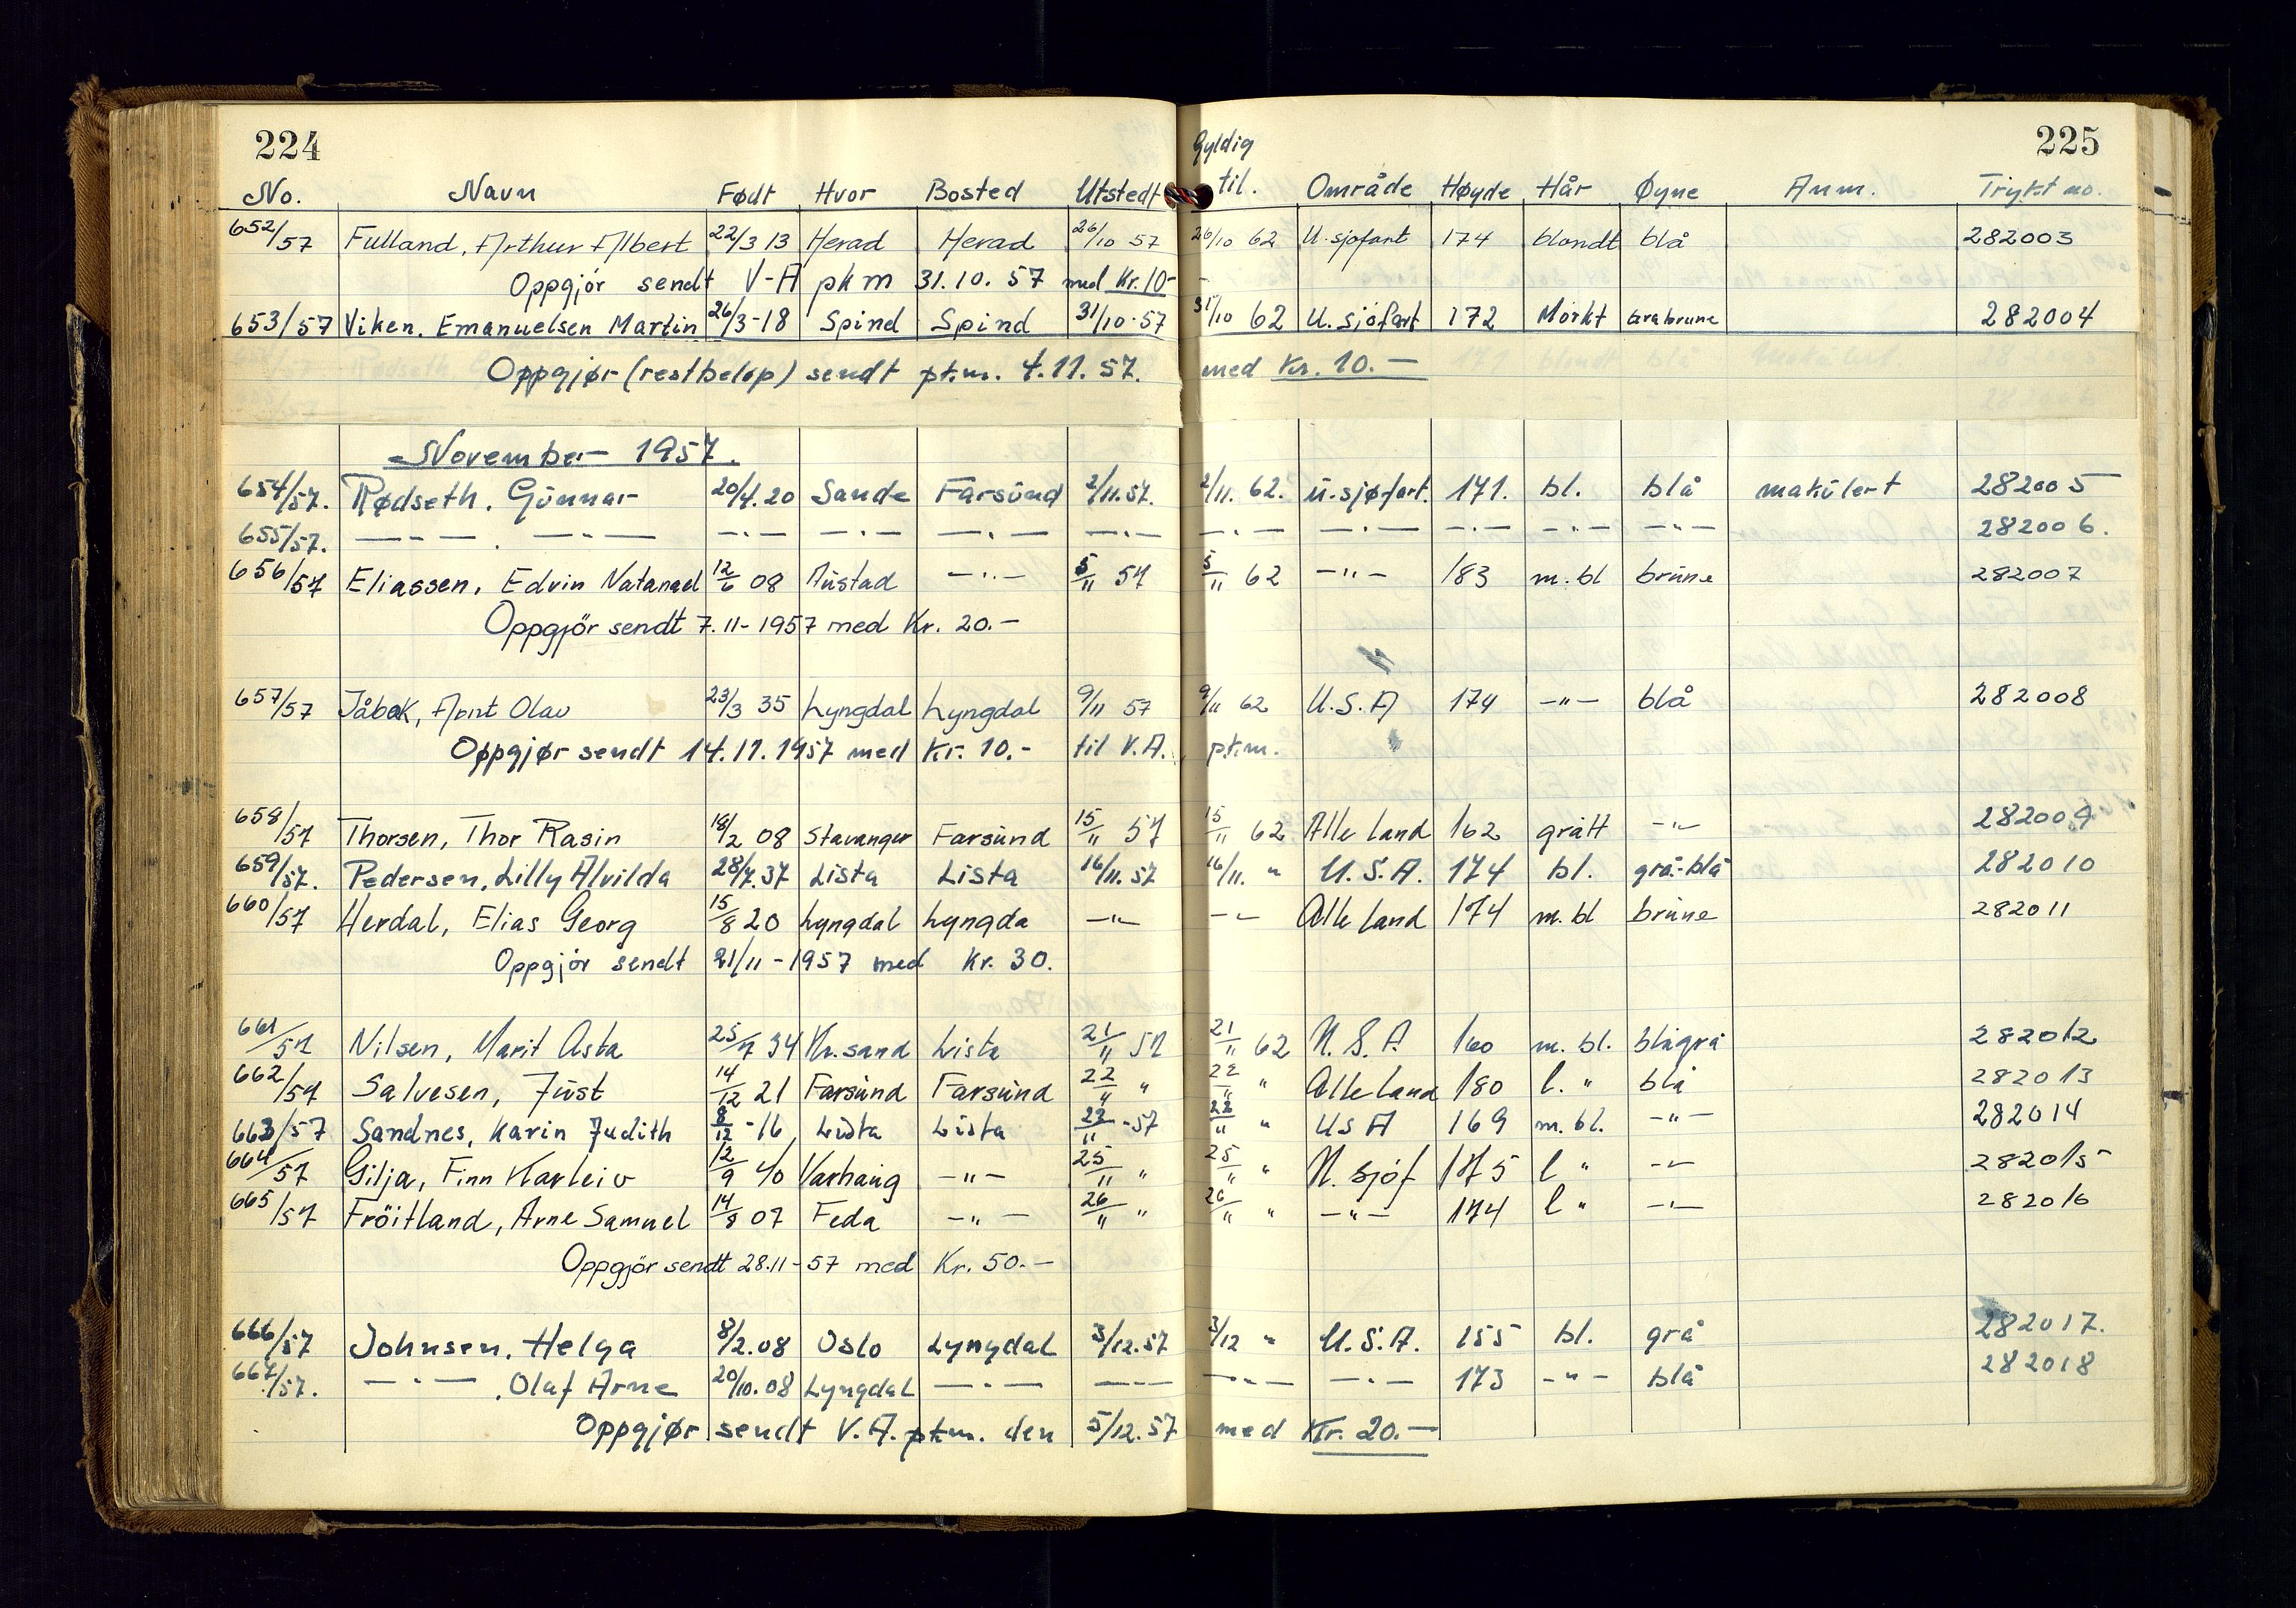 224
Gyldig
225
No. Navn Født Hvor Bosted Utstedt til. Område Høyde Hår Øyne Anm. Trykt no.
652/57 Fulland, Arthur Albert 22/3 13 Herad Herad 26/10 57 26/10 62 U.sjøfart 174 blondt blå 282003
Oppgjör sendt V-A pkm 31.10.57 med Kr.10-
653/57 Viken. Emanuelsen Martin 26/3-18 Spind Spind 31/10-57 31/10 62 U. sjöfart 172 Mörkt 282004
Oppgjør (restbeløp) sendt pt.m. 4.11.57. med Kr. 10.—
November 1957.
654/57. Rødseth. Gunnar 20/4.20 Sande Farsund 2/11.57. 2/11. 62. u.sjøfart. 171. bl. blå makulert 282005
655/57. —"— . —"— —"— —"— —"— —"— —"— —"— —"— —"— —"— 282006.
656/57 Eliassen, Edvin Natanael 12/6 08 Austad —"— 5/11 57 5/11 62 —"— 183 m.bl brune 282007
Oppgjör sendt 7.11-1957 med Kr. 20.—
657/57 Jåbæk, Arnt Olav 23/3 35 Lyngdal Lyngdal 9/11 57 9/11 62 U.S.A 174 —"— blå 282008
Oppgjør sendt 14.11.1957 med Kr. 10.- til V.A. pt.m.
658/57 Thorsen, Thor Rasin 18/2 08 Stavanger Farsund 15/11 57 15/11 62 Alle land 162 grått —"— 282009
659/57. Pedersen, Lilly Alvilda 28/7.37 Lista Lista 16/11.57 16/11. " U.S.A. 174 bl. grå-blå 282010
660/57 Herdal, Elias Georg 15/8 20 Lyngdal Lyngda —"— —"— Alle land 174 m.bl brune 282011
Oppgjör sendt 21/11-1957 med Kr. 30.
661/57 Nilsen, Marit Asta 25/7 34 Kr.sand Lista 21/11 57 21/11 62 U.S.A. 160 m.bl. blågrå 282012
662/57 Salvesen, Just 14/12 21 Farsund Farsund 22/11 " 22/11 " Alle land 180 l. " blå 282013
663/57 Sandnes, Karin Judith 8/12-16 Lista Lista 22/11-57 22/11 " USA 169 m.bl. —"— 282014
664/57 Gilja, Finn Karleiv 12/9 40 Varhaug —"— 25/11 " 25/11 " U. sjöf 175 l " —"— 282015
665/57 Fröitland, Arne Samuel 14/8 07 Feda —"— 26/11 " 26/11 " —"— 174 l " —"— 282016
Oppgjör sendt 28.11-57 med Kr. 50.—
666/57 Johnsen. Helga 8/2.08 Oslo Lyngdal 3/12.57 3/12 " U.S.A. 155 bl. grå 282017.
667/57. —"— . Olaf Arne 20/10.08 Lyngdal —"— —"— —"— —"— 173 —"— blå 282018
Oppgjør sendt V.A. pt.m. den 5/12.57 med Kr. 20.—